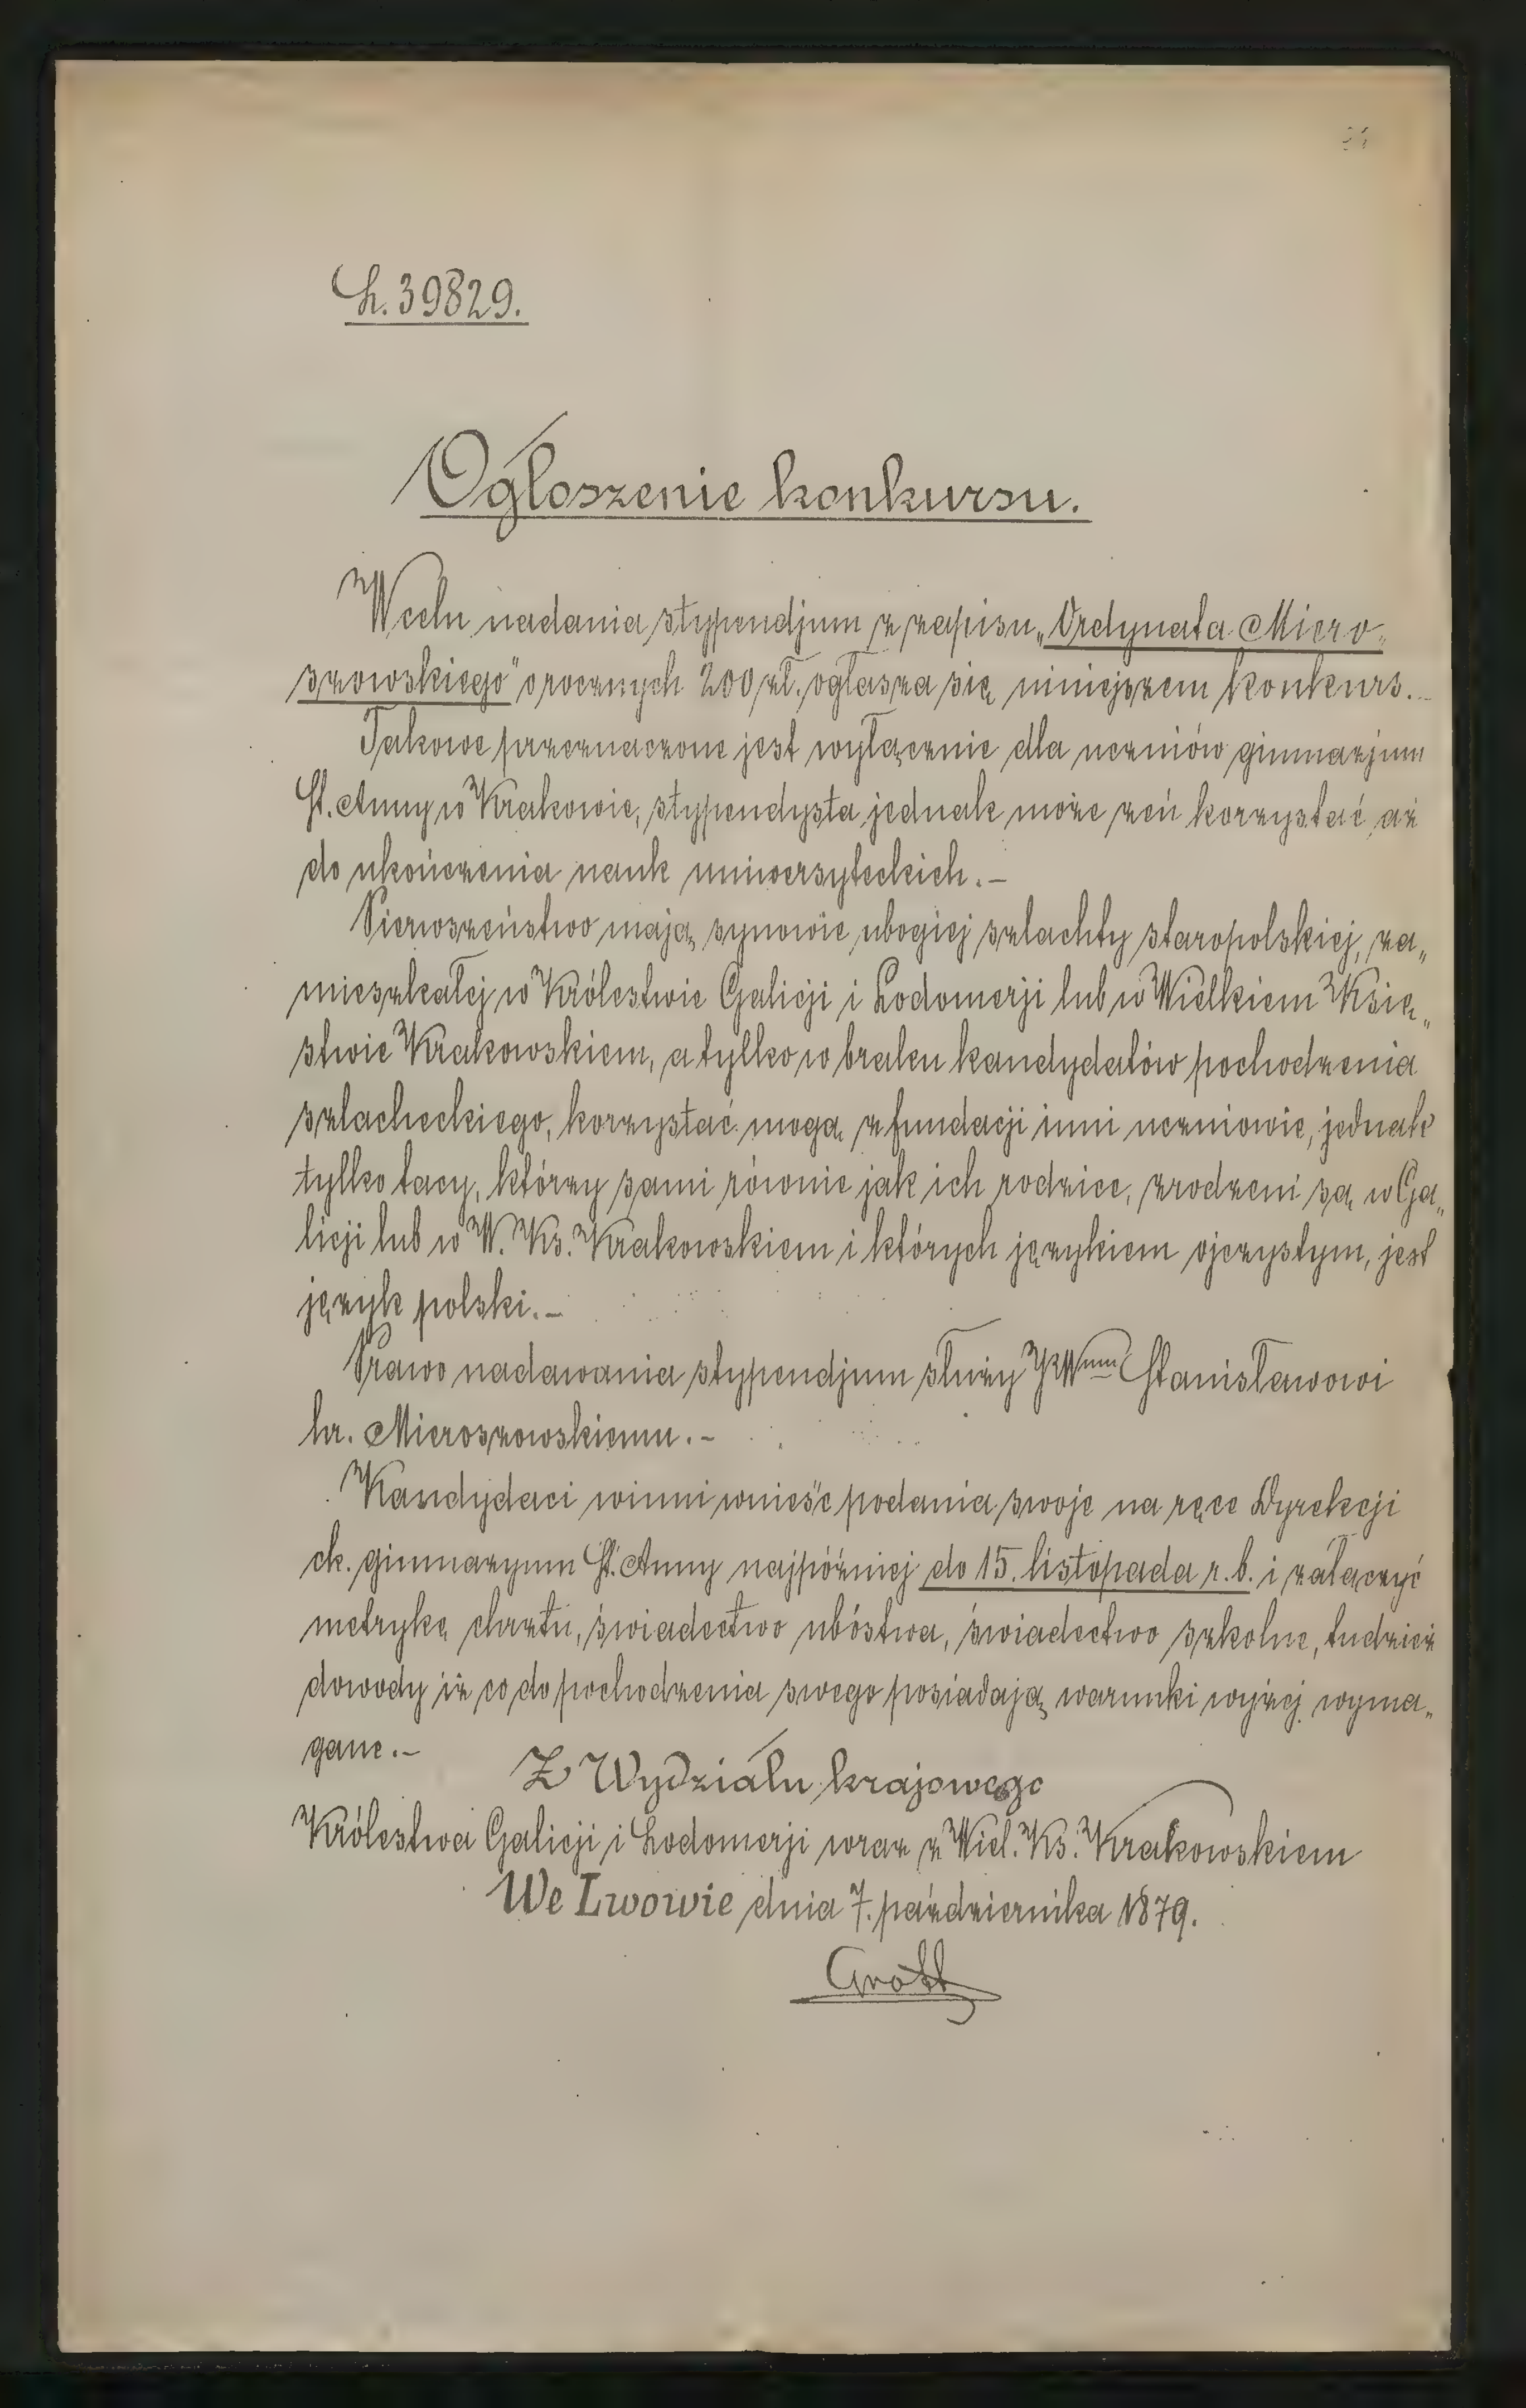 L. 39829.
Ogłoszenie konkursu.
W celu nadania stypendjum z zapisu „Ordynata Miero„
szowskiego" o rocznych 200 zł. ogłasza się niniejszem konkurs.–
Takowe przeznaczone jest wyłącznie dla uczniów gimnazjum
St. Anny w Krakowie, stypendysta jednak może zeń korzystać aż
do ukończenia nauk uniwersyteckich.–
Pierwszeństwo mają synowie ubogiej szlachty staropolskiej, za„
mieszkałej w Królestwie Galicji i Lodomerji lub w Wielkiem Księ„
stwie Krakowskiem, a tylko w braku kandydatów pochodzenia
szlacheckiego, korzystać mogą z fundacji inni uczniowie, jednak
tylko tacy, którzy sami równie jak ich rodzice, zrodzeni są w Ga„
licji lub w W. Ks. Krakowskiem i których językiem ojczystym, jest
język polski.–
Prawo nadawania stypendjum służy JWmu Stanisławowi
hr. Mieroszowskiemu.–
Kandydaci winni wnieść podania swoje na ręce Dyrekcji
ck. gimnazyum St. Anny najpóźniej do 15. listopada r. b. i załączyć
metrykę chrztu, świadectwo ubóstwa, świadectwo szkolne, tudzież
dowody iż co do pochodzenia swego posiadają warunki wyżej wyma„
gane.–
Z Wydziału krajowego
Królestwa Galicji i Lodomerji wraz z Wiel. Ks. Krakowskiem
We Lwowie dnia 7. października 1879.